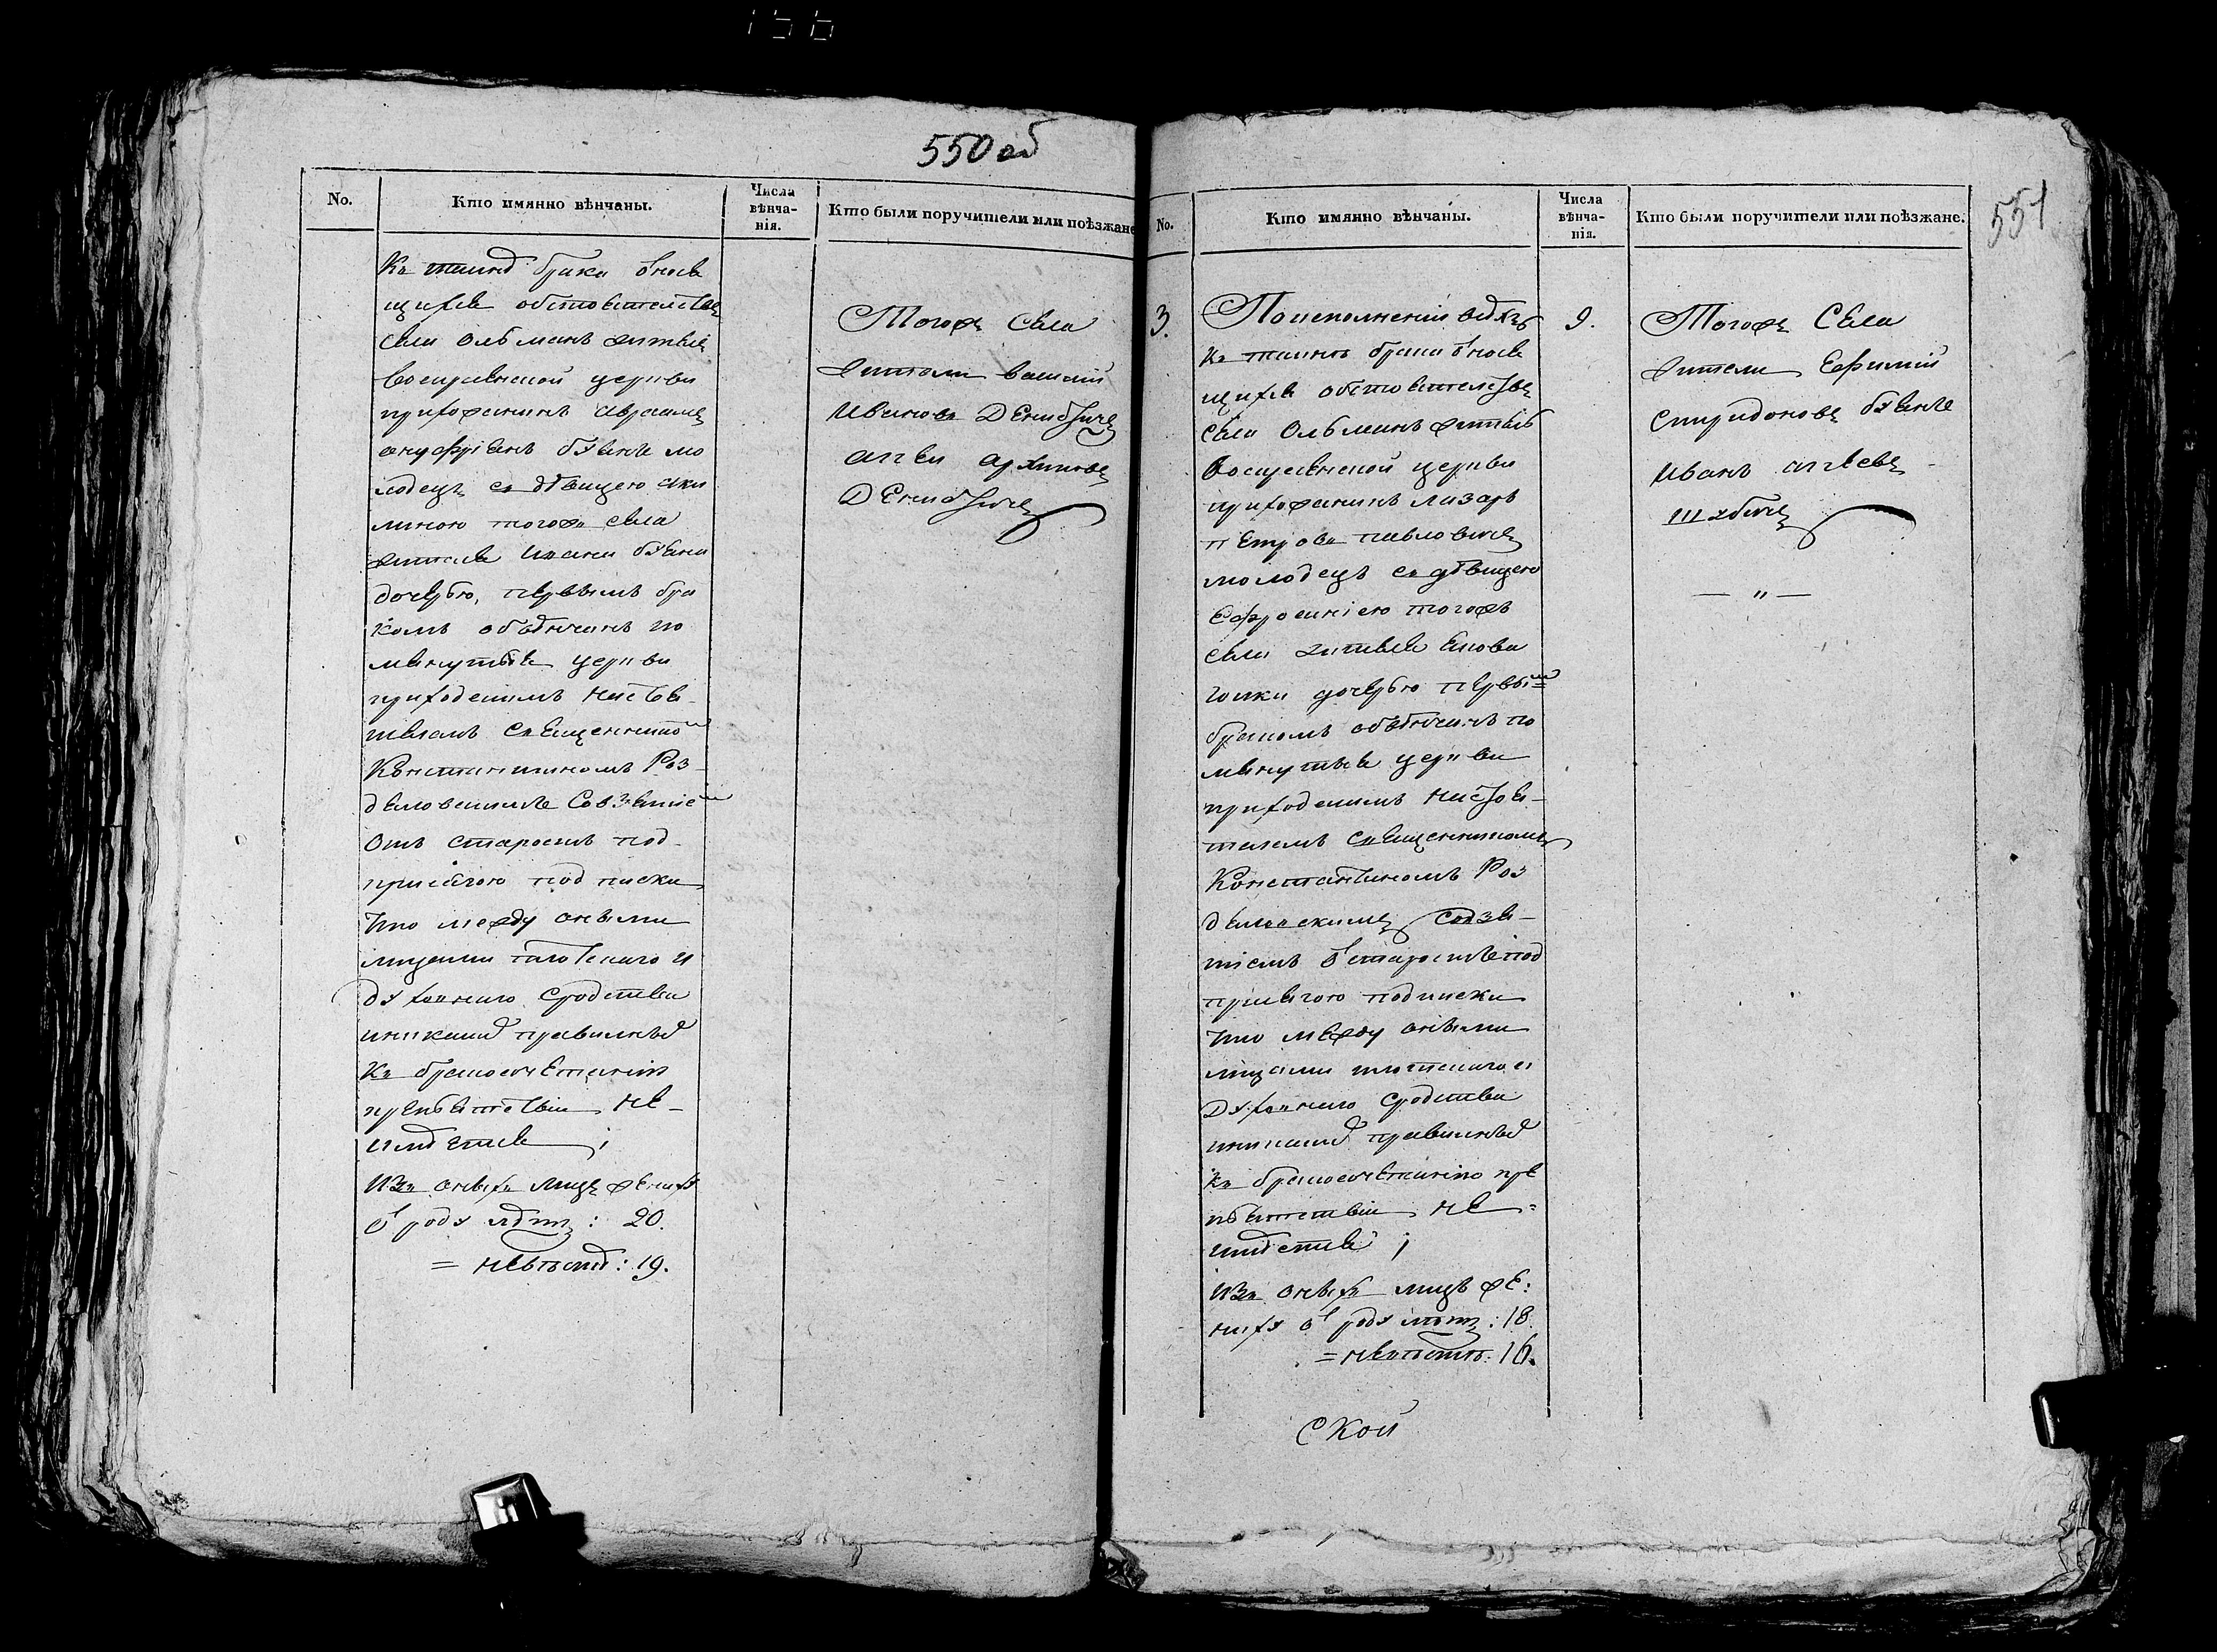 550 об
No.
Кто имянно вѣнчаны.
Числа
вѣнча-
нія.
Кто были поручители или поѣзжане
Къ таинѣ брака
щихся обстоятелствъ
села Олбманъ житель
воскресенской церкви
прихожанинъ Авраамъ
ануфріевъ мо
лодецъ съ дѣвицею аки
линою тогожъ села
жителя
дочерью, первымъ бра
комъ обвѣнчанъ по
мянутыя церкви
приходскимъ настоя-
телемъ священникомъ
Константиномъ Роз-
деловскимъ Совзятіем
отъ старостъ под-
присягою подписки
что между оными
лицами плотскаго и
духовнаго сродства
иникаиѣ правилнѣ
къ бракосочетанію
препятствіи не-
имѣется ;
Изъ оныхъ лицъ жениху
ѿ роду лѣтъ : 20.
= невѣстѣ : 19.
Тогожъ Села
жители василий
Ивановъ
архиповъ
No.
Кто имянно вѣнчаны.
Числа
вѣнча-
нія.
Кто были поручители или поѣзжане.
551
3.
По исполненіи
къ таинѣ брака
щихся обстоятелствъ
села Олбманъ житель
Воскресенской церкви
прихожанинъ лазарь
петровъ павловичъ
молодецъ съ дѣвицею
Ефросиніею тогожъ
села жителя
дочерью первым
бракомъ обвѣнчанъ по
мянутыя церкви
приходскимъ настоя-
телемъ священникомъ
Константиномъ Роз
деловскимъ совзя-
тіемъ ѿ старостъ под
присягою подписки
что между оными
лицами плотскаго и
духовнаго сродства
иникаиѣ правилнѣ
къ бракосочетанію пре
пятствіи не=
имѣется ;
Изъ оныхъ лицъ же:
ниху ѿ роду лѣтъ : 18.
= невѣстѣ : 16.
ской
9.
Тогожъ Села
жители Ефимий
Спиридоновъ
Иванъ
— " —